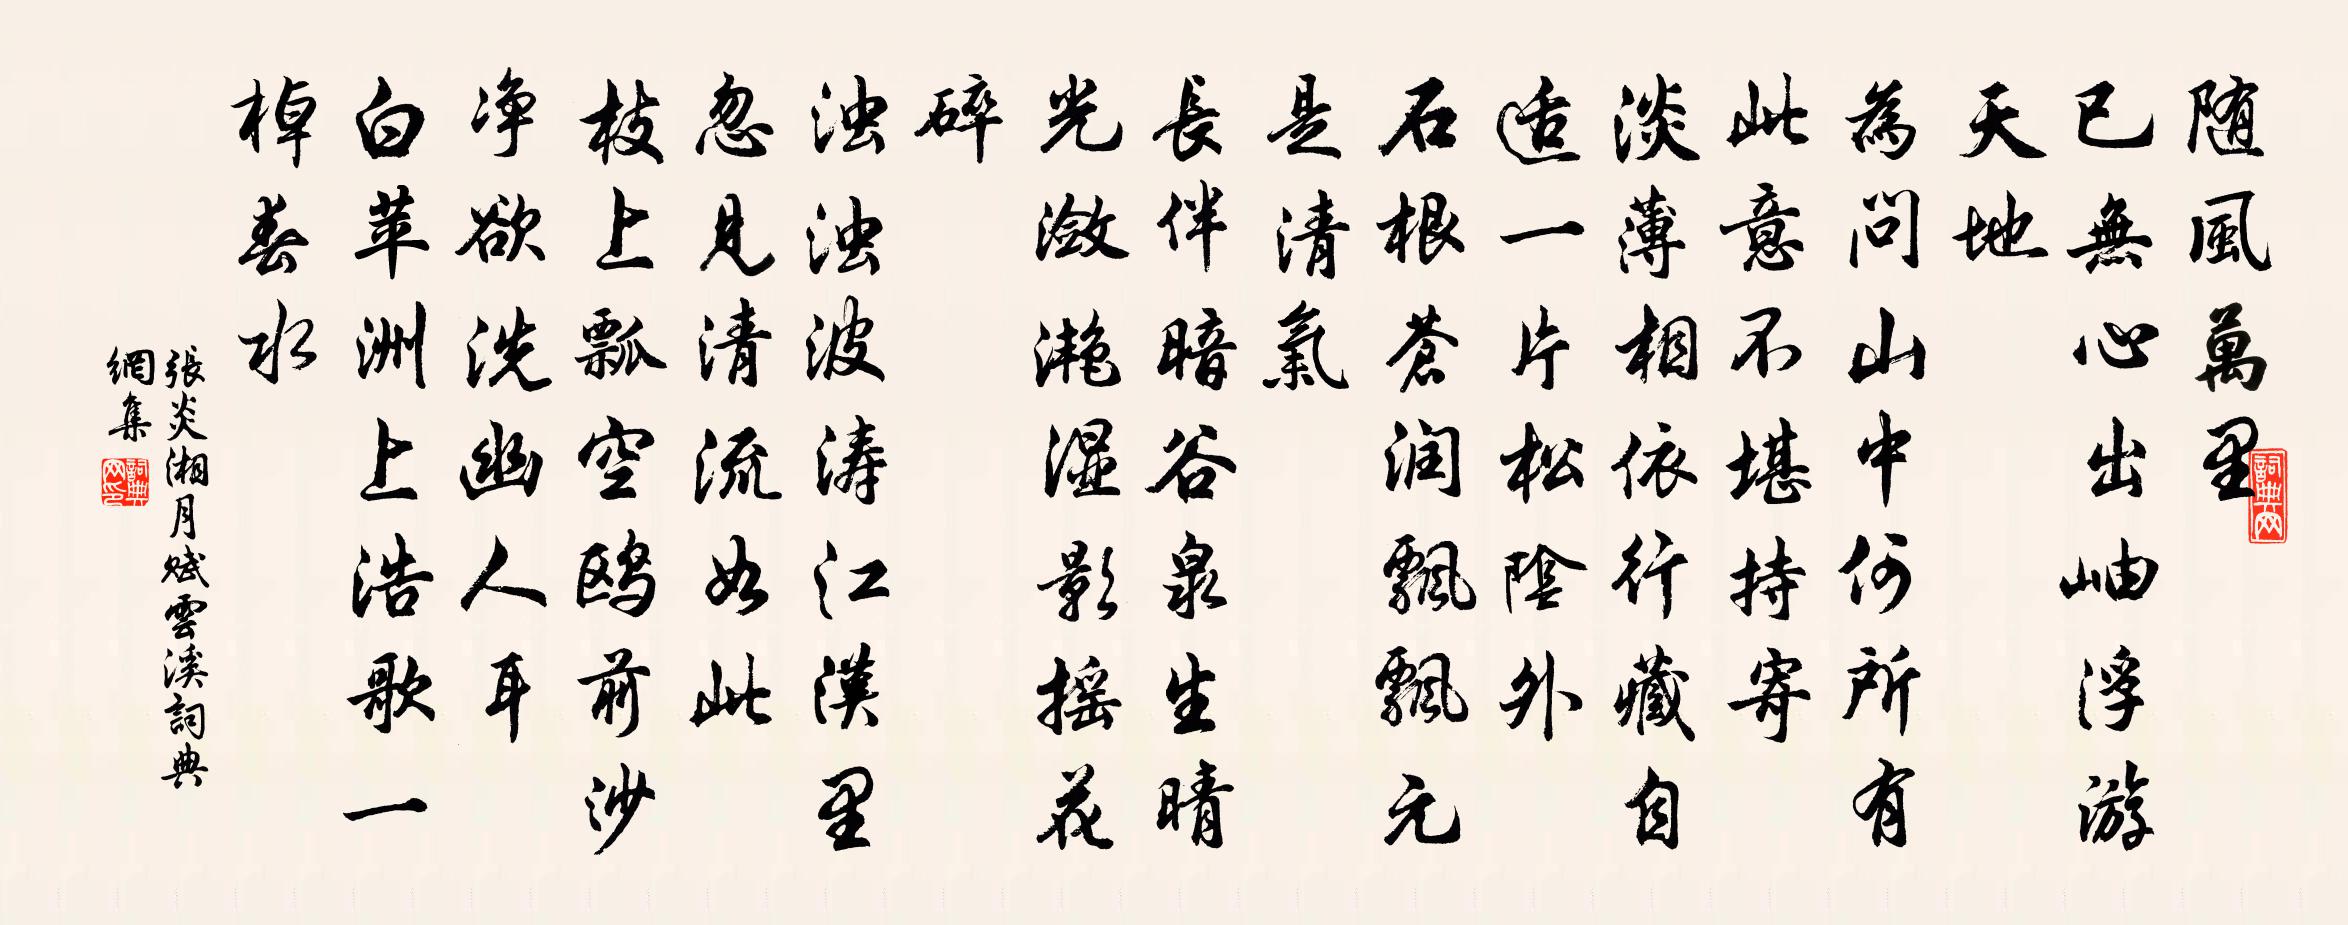 随風萬里
已無心出岫浮游
天地
為問山中何所有
此意不堪持寄
淡薄相依行藏自
适一片松陰外
石根蒼润飄飄元
是清氣
長伴暗谷泉生晴
光潋滟湿影摇花
碎
浊浊波涛江漢里
忽見清流如此
枝上瓢空鸥前沙
净欲洗幽人耳
白苹洲上浩歌一
棹春水
張炎湘月賦雲溪詞典
網集
詞典网
詞典网印